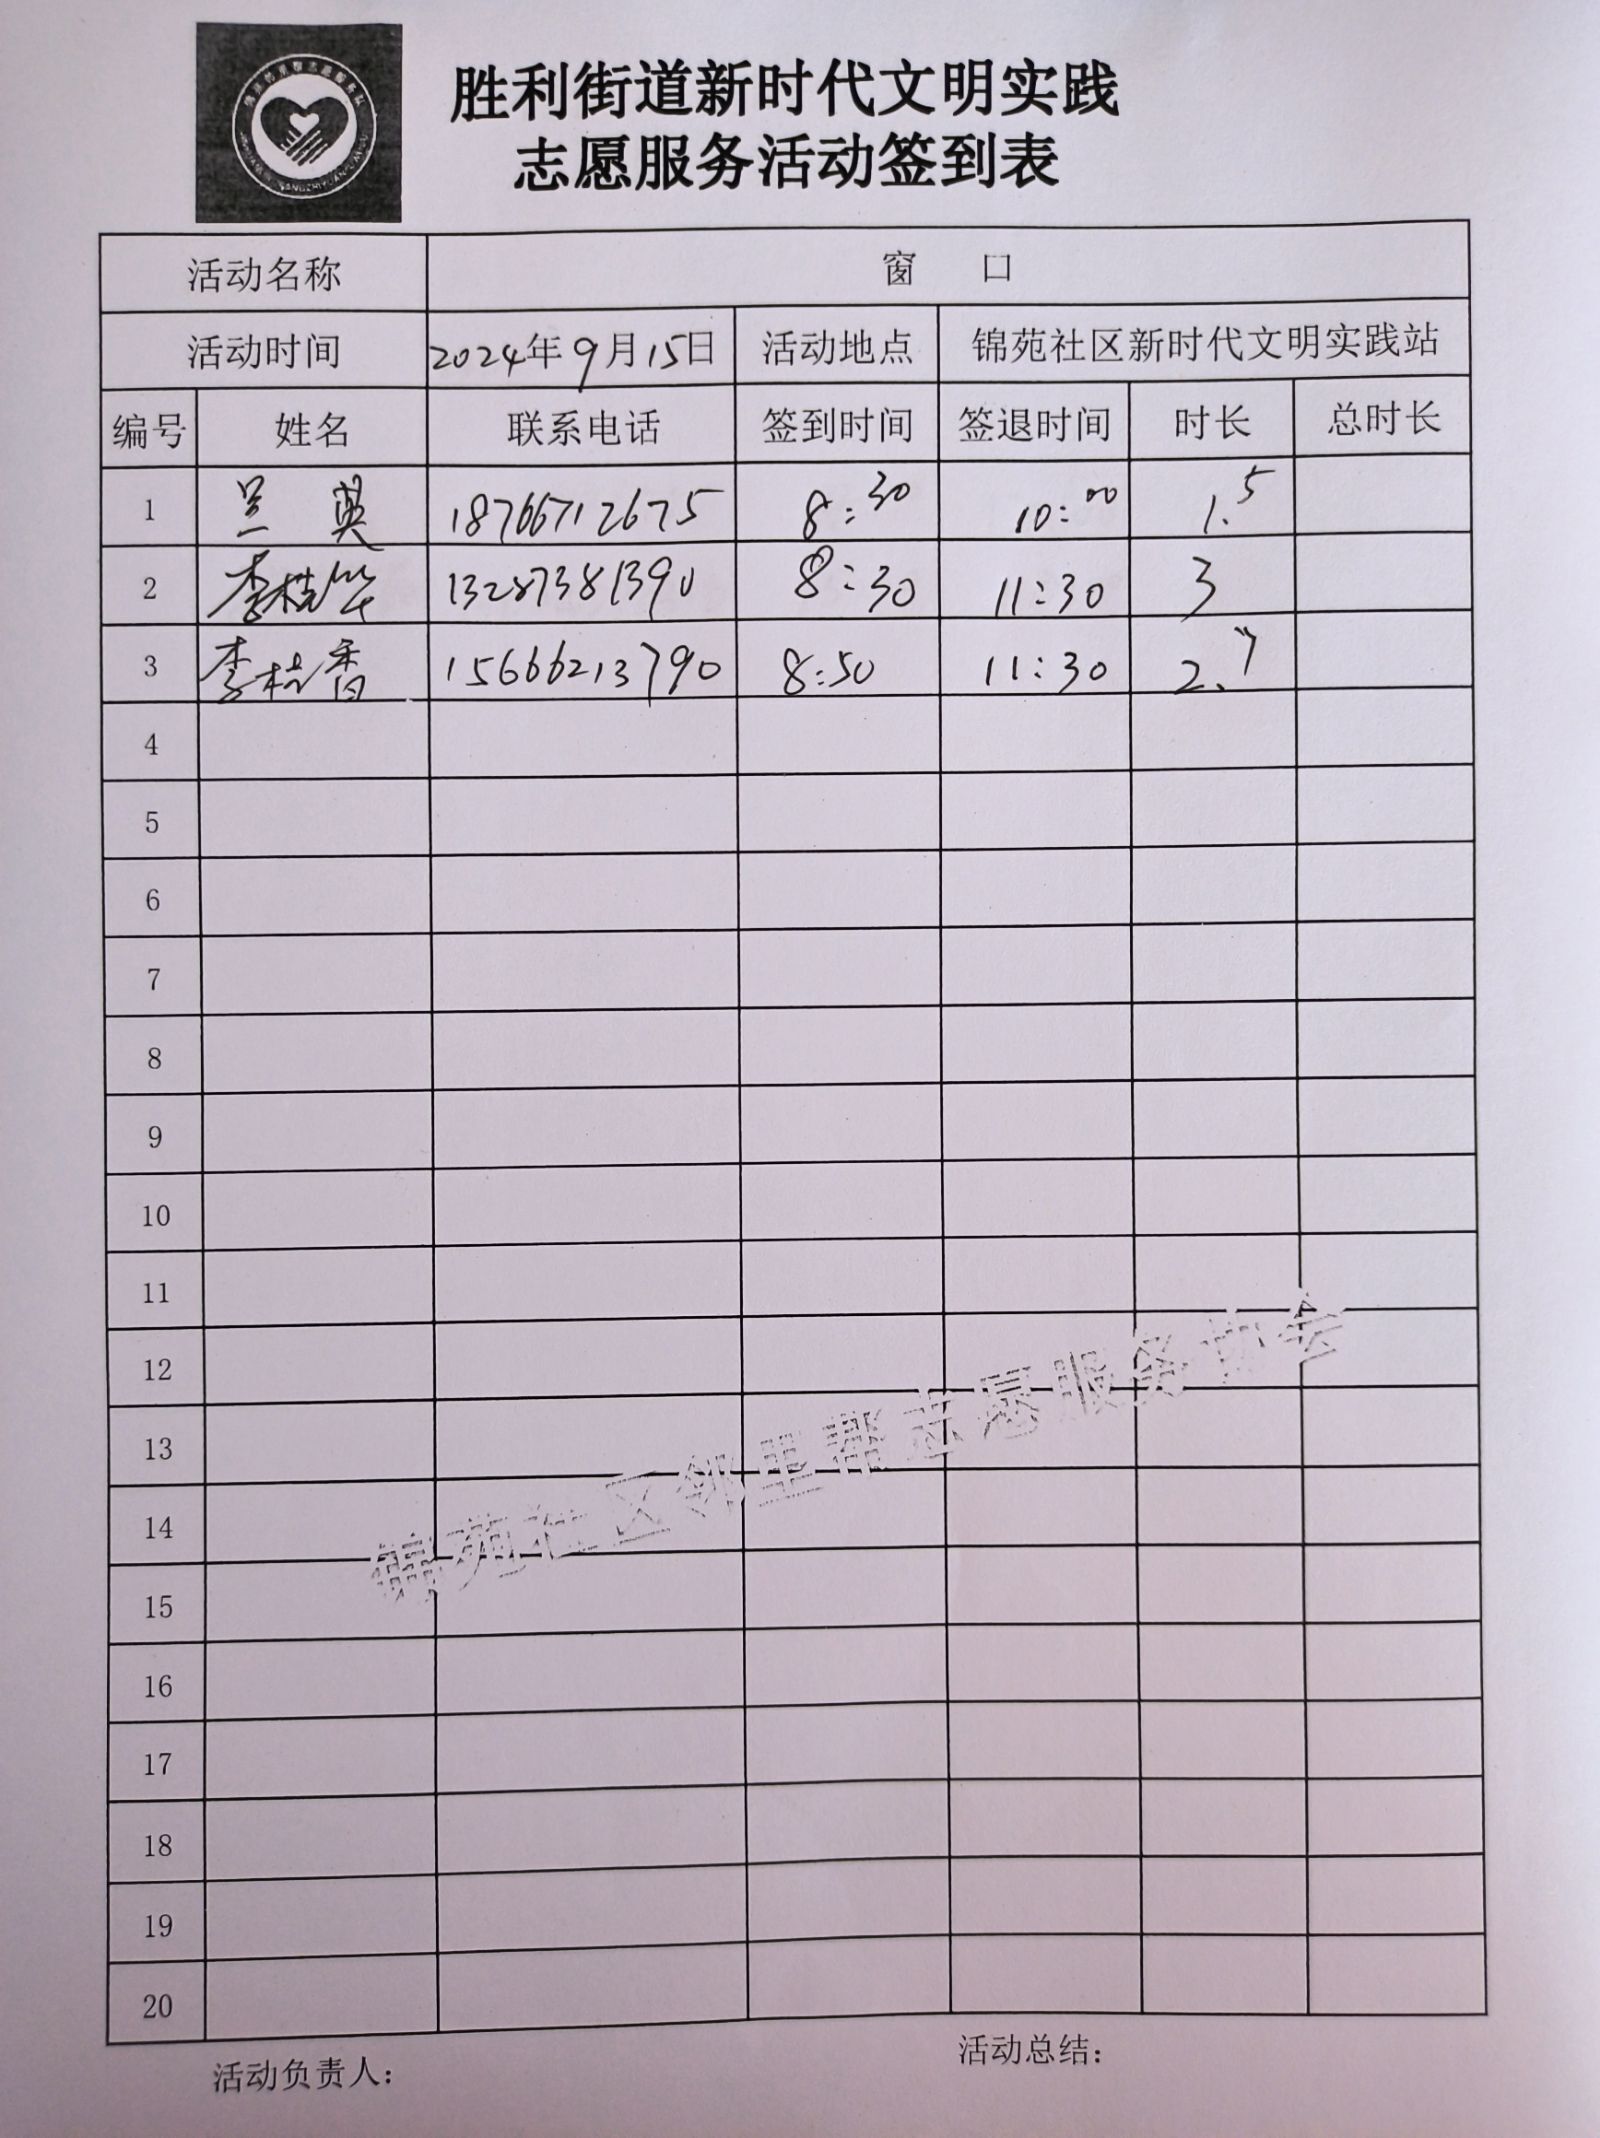 胜利街道新时代文明实践
志愿服务活动签到表
活动名称 窗 口
活动时间 2024年9月15日 活动地点 锦苑社区新时代文明实践站
编号 姓名 联系电话 签到时间 签退时间 时长 总时长
1 18766712675 8:30 10:00 1.5
2 李桂华 13287381390 8:30 11:30 3
3 李桂香 15666213790 8:50 11:30 2.7
4
5
6
7
8
9
10
11
12
13
14
15
16
17
18
19
20
锦苑社区邻里帮志愿服务协会
活动负责人: 活动总结: